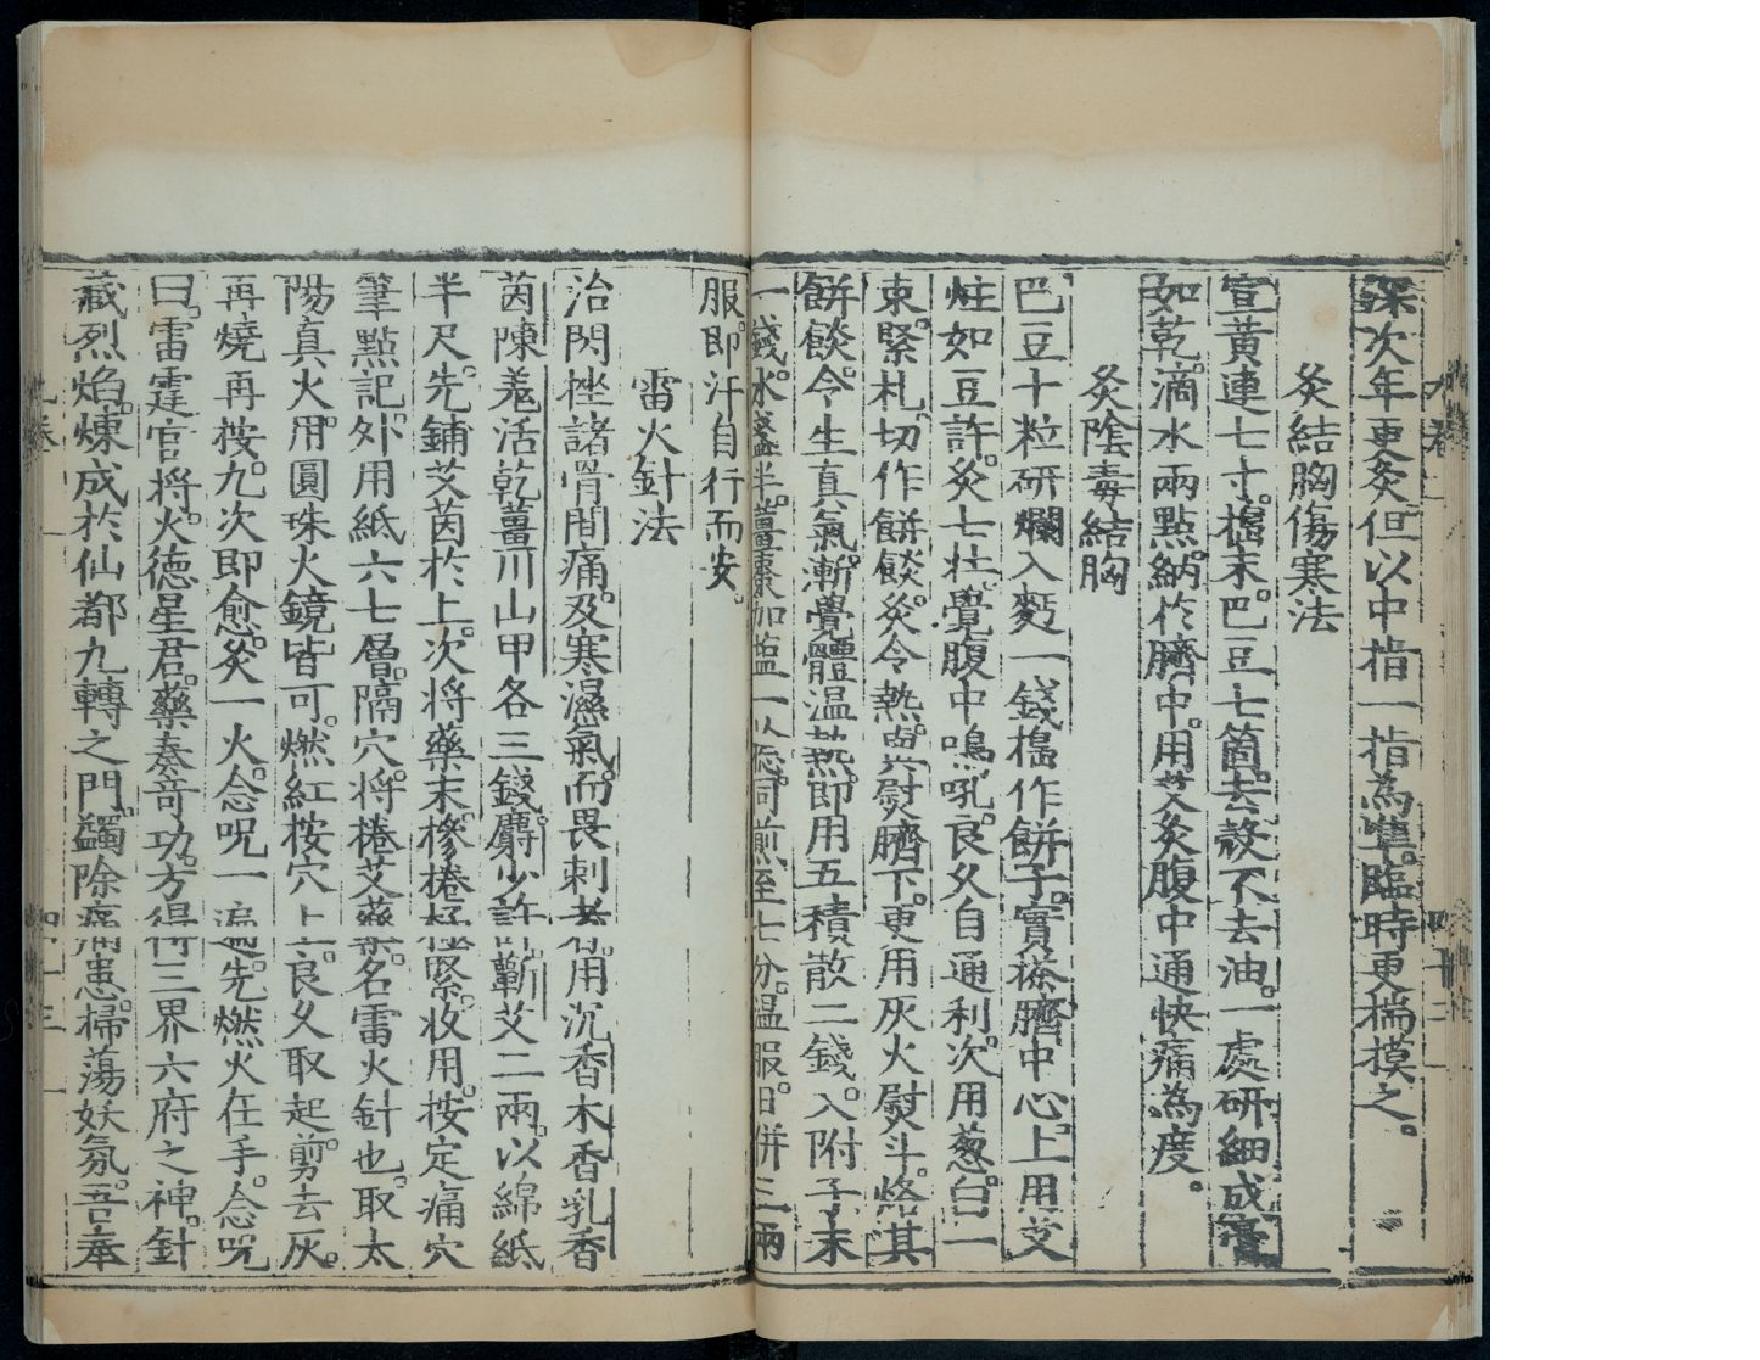 深次年更灸但以中指一指為準。臨時更揣摸之。
灸結胸傷寒法
宣黃連七寸。搗末。巴豆七箇。去殼不去油。一處研細成膏
如乾。滴水兩點。納於臍中。用艾灸腹中通快痛為度。
灸陰毒結胸
巴豆十粒研爛入麪一錢搗作餅子。實搽臍中心。上用艾
炷如豆許。灸七壯。覺腹中鳴吼。良久自通利。次用葱白一
束。緊札。切作餅餤。灸令熱。與熨臍下。更用灰火熨斗。烙其
餅餤。令生真氣。漸覺體温熱。即用五積散二錢。入附子末
一錢。水盞半。薑棗加塩一以。同煎至七分。温服。日併三兩
服。即汗自行而安。
雷火針法
治閃挫諸骨間痛。及寒濕氣。而畏刺者。用沉香木香乳香
茵陳羗活乾薑川山甲各三錢。麝少許。蘄艾二兩。以綿紙
半尺。先鋪艾茵於上。次将藥末。摻捲極緊。收用。按定痛穴
筆點記。外用紙六七層。隔穴。将捲艾藥。名雷火針也。取太
陽真火。用圓珠火鏡皆可。燃紅按穴上。良久取起。剪去灰。
再燒再按。九次即愈。灸一火。念呪一遍。先燃火在手。念呪
曰。雷霆官将。火徳星君。藥奏竒功。方得三界六府之神。針
藏烈焰。煉成於仙都九轉之門。蠲除痛患。掃蕩妖氛。吾奉